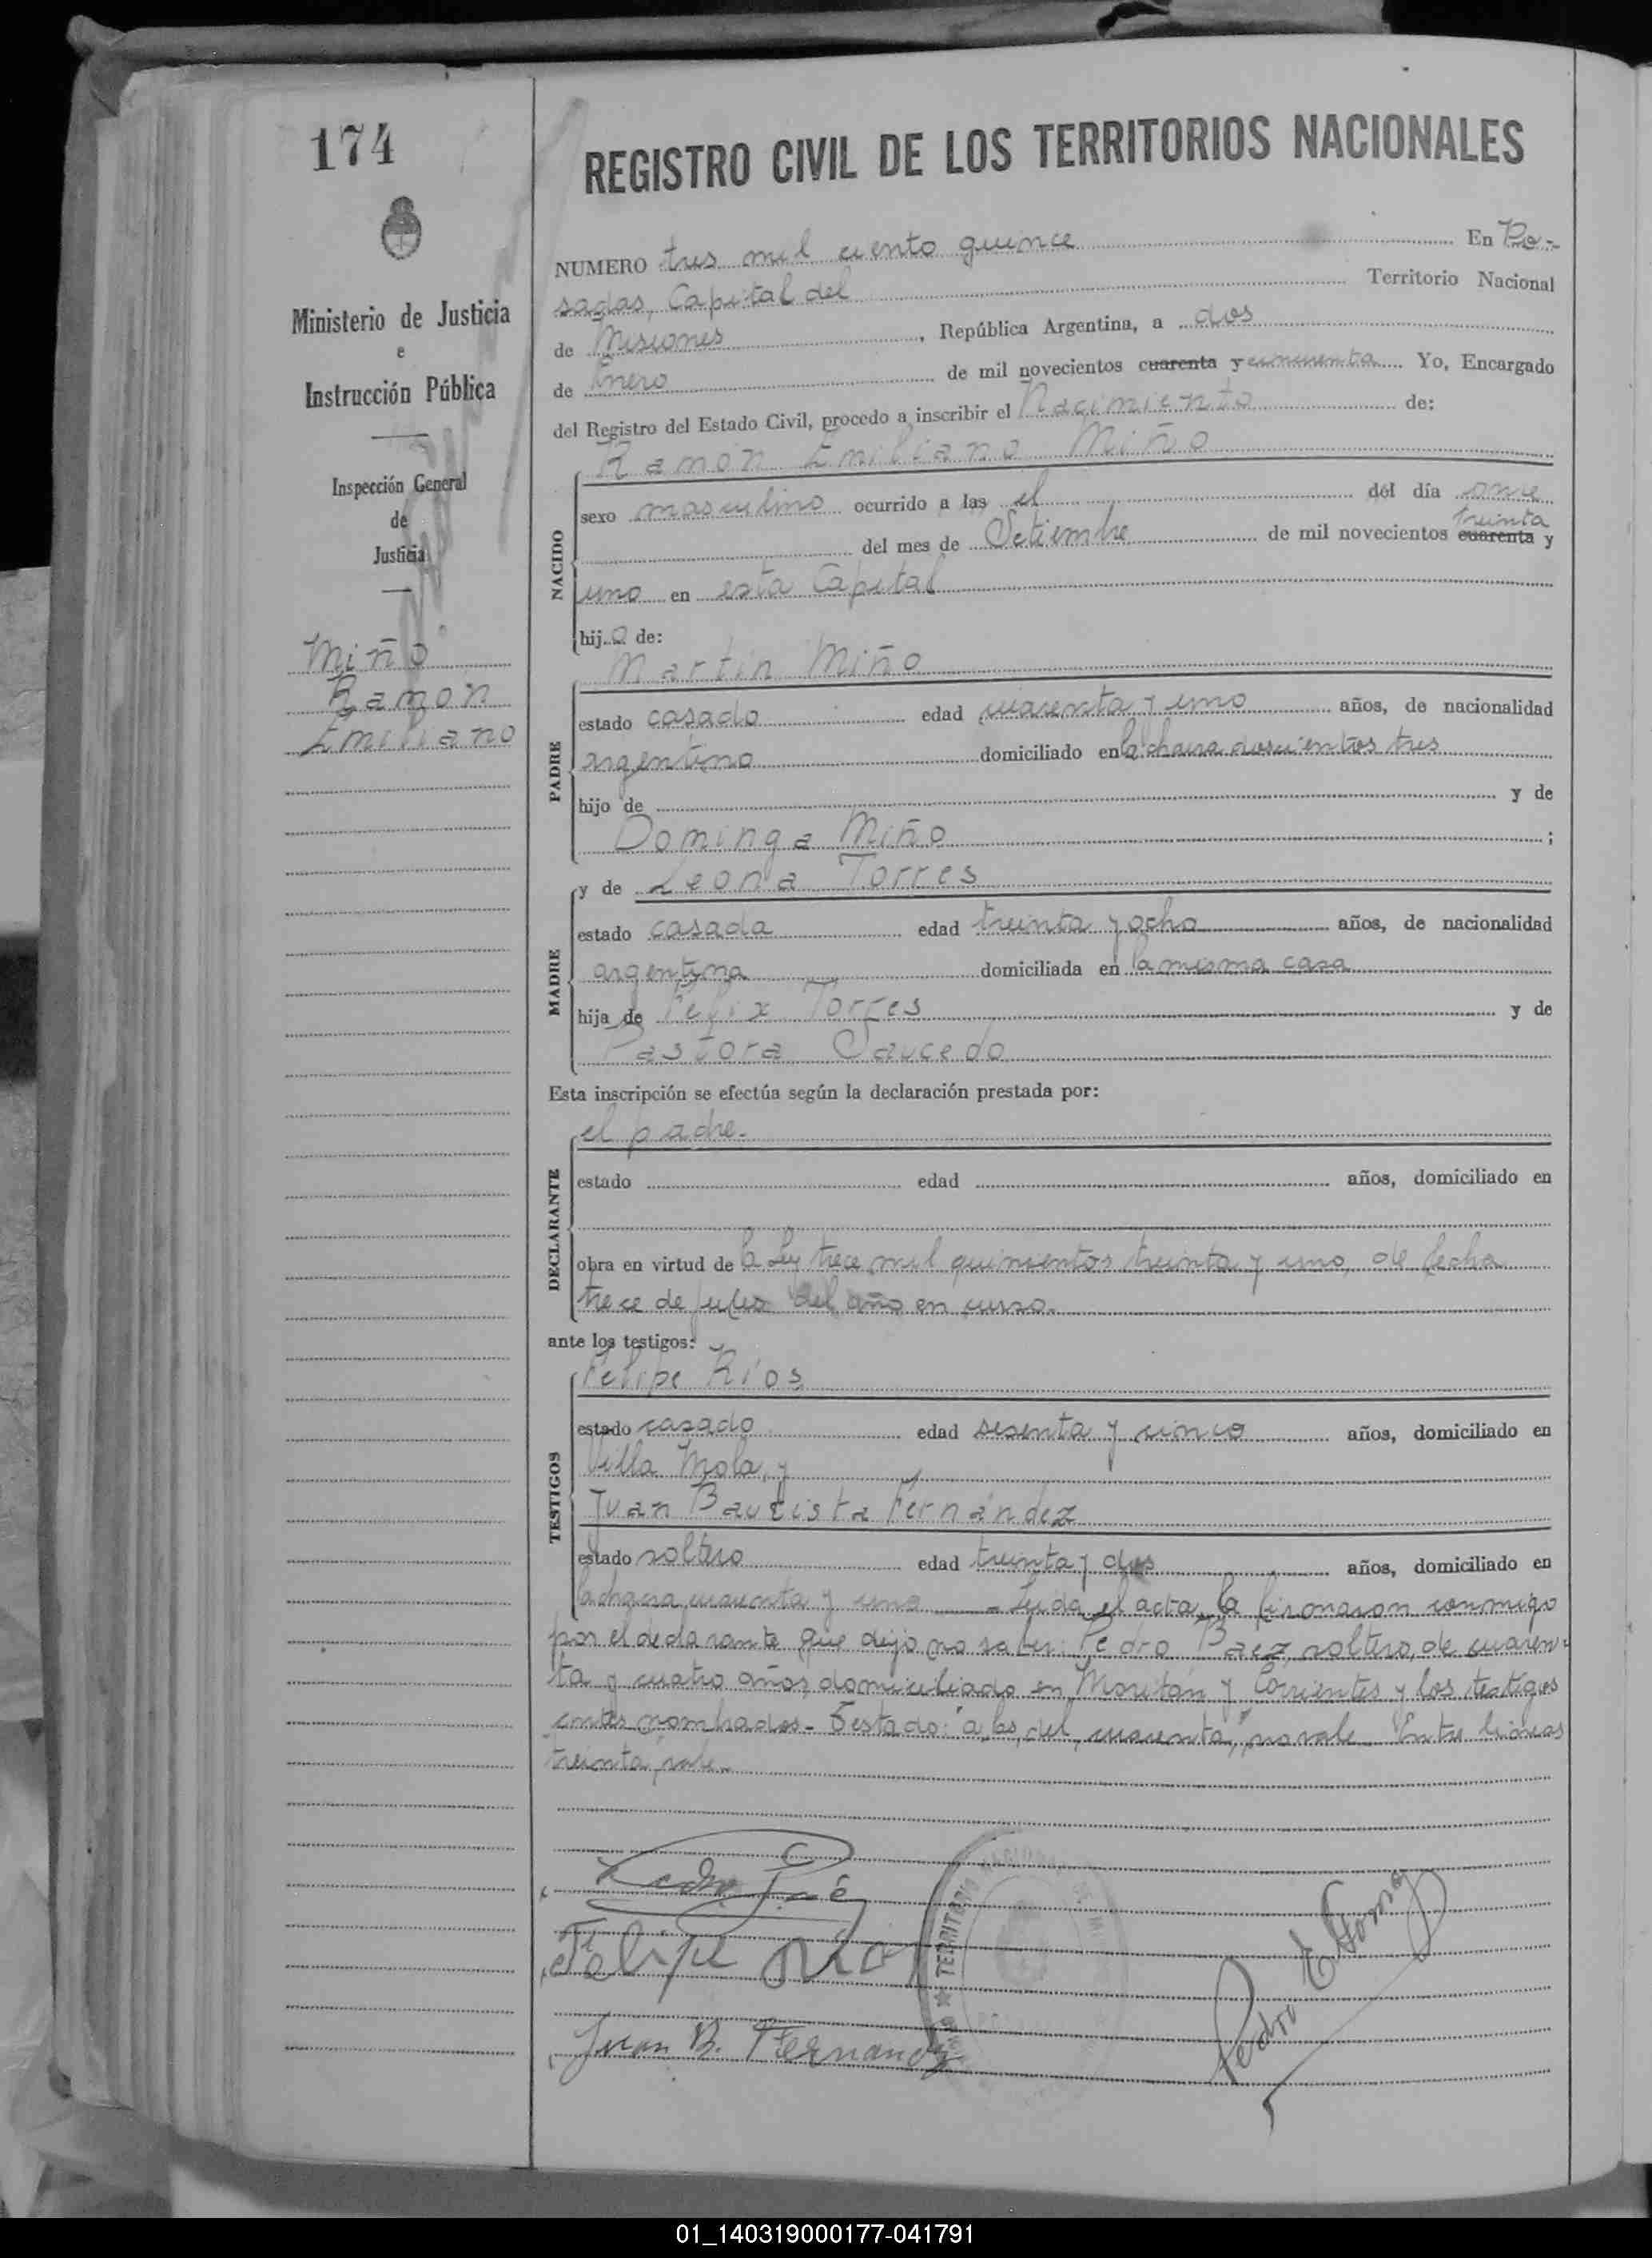 174
Ministerio de Justicia
e
Instrucción Pública
Inspección General
de
Justicia
Miño
Ramon
Emiliano
REGISTRO CIVIL DE LOS TERRITORIOS NACIONALES
NUMERO tres mil ciento quince En Po-
sadas, Capital del Territorio Nacional
de Misiones, República Argentina, a dos
de Enero de mil novecientos cuarenta y cincuenta Yo, Encargado
del Registro del Estado Civil, procedo a inscribir el Nacimiento de:
Ramon Emiliano Miño
NACIDO
sexo masculino ocurrido a las el del día once
treinta
del mes de Setiembre de mil novecientos cuarenta y
uno en esta Capital
hijo de:
Martin Miño
PADRE
estado casado edad cuarenta y uno años, de nacionalidad
argentino domiciliado en la chacra doscientos tres
hijo de y de
Dominga Miño ;
y de Leona Torres
MADRE
estado casada edad treinta y ocho años, de nacionalidad
argentina domiciliada en la misma casa
hija de Felix Torres y de
Pastora Saucedo
Esta inscripción se efectúa según la declaración prestada por:
el padre.
DECLARANTE
estado edad años, domiciliado en
obra en virtud de la Ley trece mil quinientos treinta y uno, de fecha
trece de julio del año en curso.
ante los testigos:
Felipe Ríos
TESTIGOS
estado casado edad sesenta y cinco años, domiciliado en
Villa Mola, y
Juan Bautista Fernández
estado soltero edad treinta y dos años, domiciliado en
la chacra cuarenta y uno - Leida el acta, la firmaron conmigo
por el declarante que dijo no saber: Pedro Baez, soltero, de cuaren-
ta y cuatro años, domiciliado en Moritán y Corrientes y los testigos
antes nombrados - Testado: "a las, del, cuarenta", no vale. Entre lineas
"treinta", vale.
Felipe Rio
Juan B. Fernandz
TERRITORIO
Pedro E Gomez
01_140319000177-041791